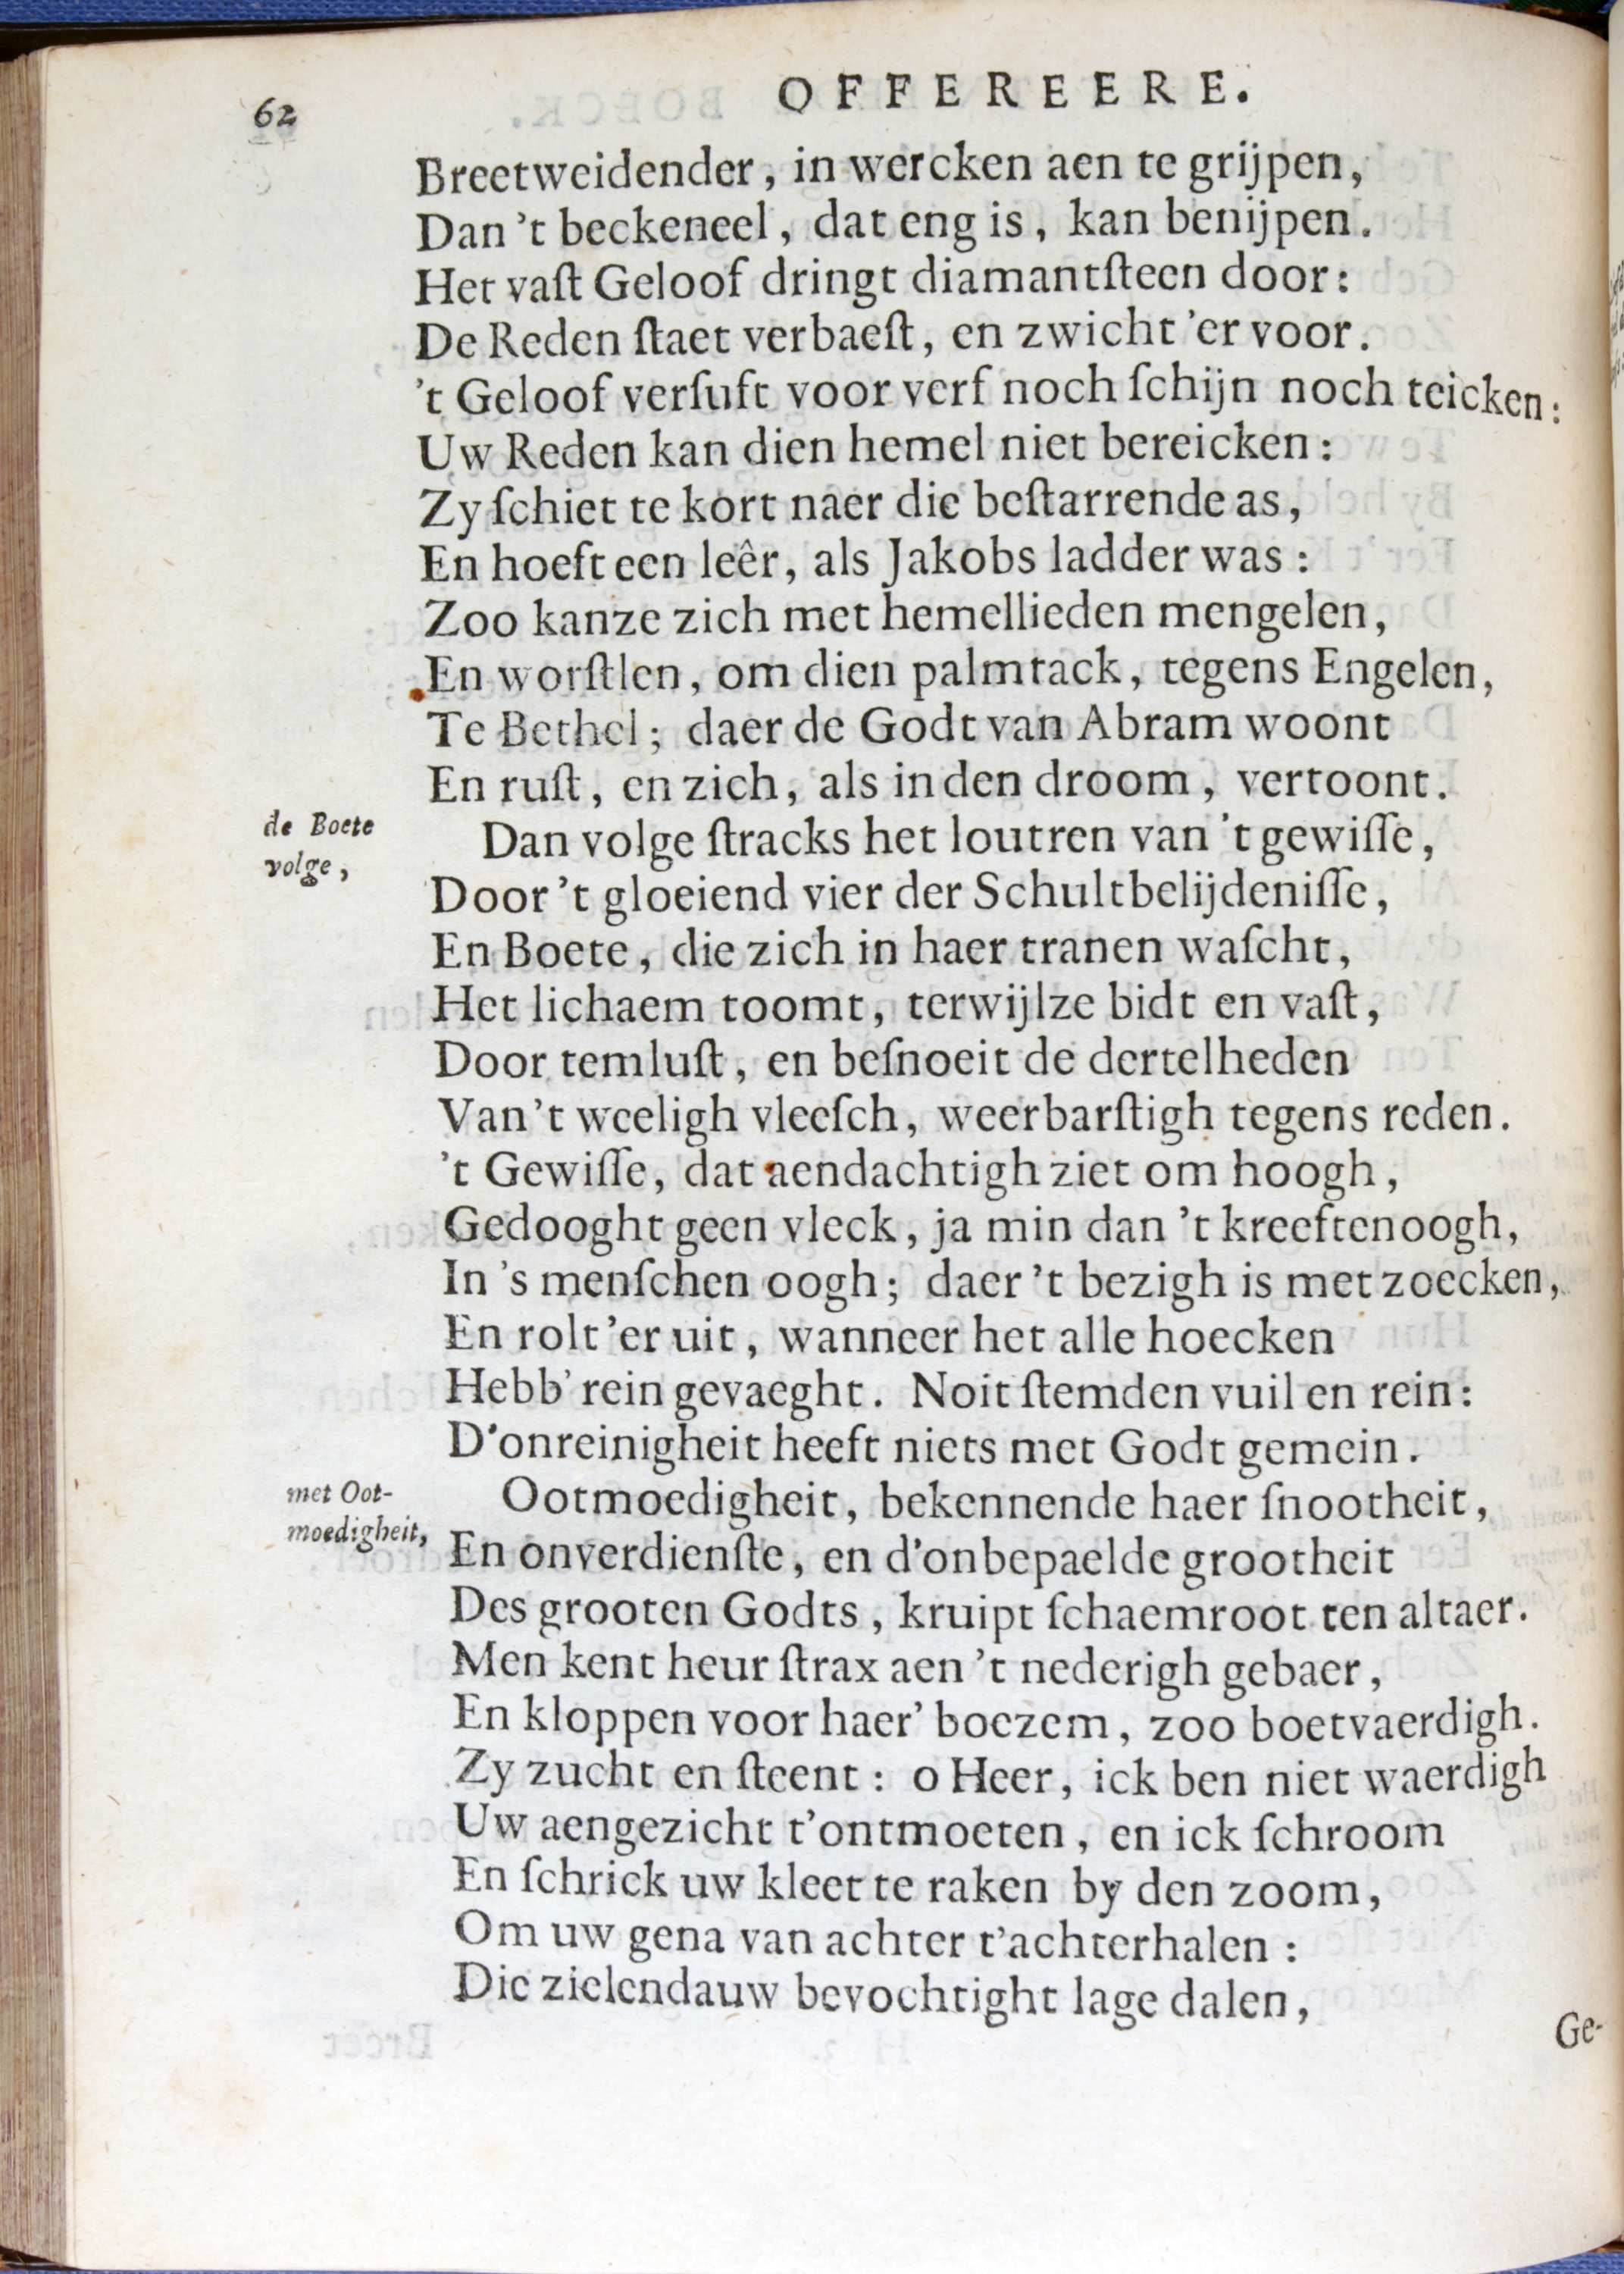 62
OFFEREERE.
Breetweidender, in wercken aen te grijpen,
Dan 't beckeneel, dat eng is, kan benijpen.
Het vaſt Geloof dringt diamantſteen door:
De Reden ſtaet verbaeſt, en zwicht 'er voor.
't Geloof verſuft voor verf noch ſchijn noch teicken:
Uw Reden kan dien hemel niet bereicken:
Zy ſchiet te kort naer die beſtarrende as,
En hoeft een leêr, als Jakobs ladder was:
Zoo kanze zich met hemellieden mengelen,
En worſtlen, om dien palmtack, tegens Engelen,
Te Bethel; daer de Godt van Abram woont
En ruſt, en zich, als in den droom, vertoont.
de Boete
volge,
Dan volge ſtracks het loutren van 't gewiſſe,
Door 't gloeiend vier der Schultbelijdeniſſe,
En Boete, die zich in haer tranen waſcht,
Het lichaem toomt, terwijlze bidt en vaſt,
Door temluſt, en beſnoeit de dertelheden
Van 't weeligh vleeſch, weerbarſtigh tegens reden.
't Gewiſſe, dat aendachtigh ziet om hoogh,
Gedooght geen vleck, ja min dan 't kreeftenoogh,
In 's menſchen oogh; daer 't bezigh is met zoecken,
En rolt 'er uit, wanneer het alle hoecken
Hebb' rein gevaeght. Noit ſtemden vuil en rein:
D'onreinigheit heeft niets met Godt gemein.
met Oot-
moedigheit,
Ootmoedigheit, bekennende haer ſnootheit,
En onverdienſte, en d'onbepaelde grootheit
Des grooten Godts, kruipt ſchaemroot ten altaer.
Men kent heur ſtrax aen 't nederigh gebaer,
En kloppen voor haer' boezem, zoo boetvaerdigh.
Zy zucht en ſteent: o Heer, ick ben niet waerdigh
Uw aengezicht t'ontmoeten, en ick ſchroom
En ſchrick uw kleet te raken by den zoom,
Om uw gena van achter t'achterhalen:
Die zielendauw bevochtight lage dalen,
Ge-